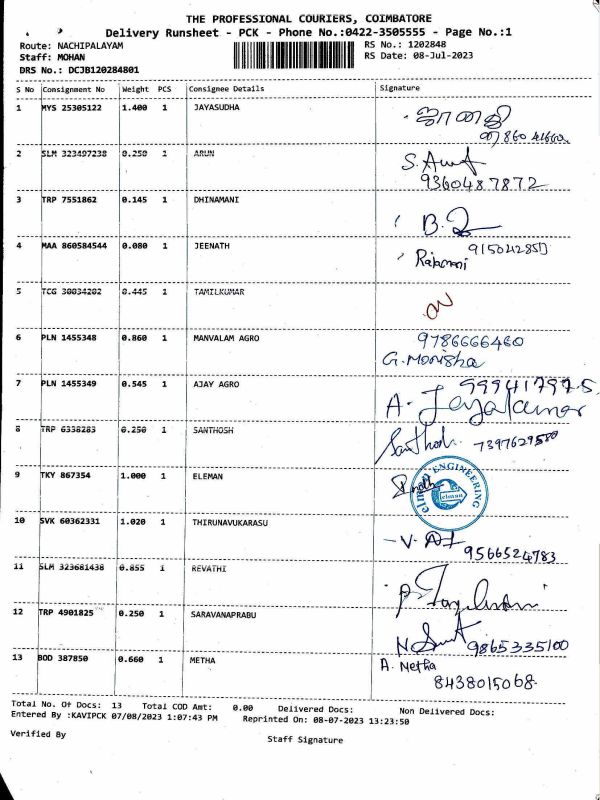 THE PROFESSIONAL COURIERS, COIMBATORE
Delivery Runsheet - PCK - Phone No.:0422-3505555 - Page No.:1
Route: NACHIPALAYAM RS No.: 1202848
Staff: MOHAN RS Date: 08-Jul-2023
DRS No.: DCJB120284801
S No Consignment No Weight PCS Consignee Details Signature
1 MYS 25305122 1.400 1 JAYASUDHA
2 SLM 323497238 0.250 1 ARUN
9360487872
3 TRP 7551862 0.145 1 DHINAMANI
B.
4 MAA 860584544 0.080 1 JEENATH
Rajamani
5 TCG 30034202 0.445 1 TAMILKUMAR
6 PLN 1455348 0.860 1 MANVALAM AGRO 9786666460
G. Monisha
7 PLN 1455349 0.545 1 AJAY AGRO
A. Jayakumar
8 TRP 6338283 0.250 1 SANTHOSH
Santhosh 7397629580
9 TKY 867354 1.000 1 ELEMAN
ENGINEERING
10 SVK 60362331 1.020 1 THIRUNAVUKARASU
9566524783
11 SLM 323681438 0.855 1 REVATHI
12 TRP 4901825 0.250 1 SARAVANAPRABU
9865335100
13 BOD 387850 0.660 1 METHA A. Metha
8438015068
Total No. Of Docs: 13 Total COD Amt: 0.00 Delivered Docs: Non Delivered Docs:
Entered By :KAVIPCK 07/08/2023 1:07:43 PM Reprinted On: 08-07-2023 13:23:50
Verified By
Staff Signature